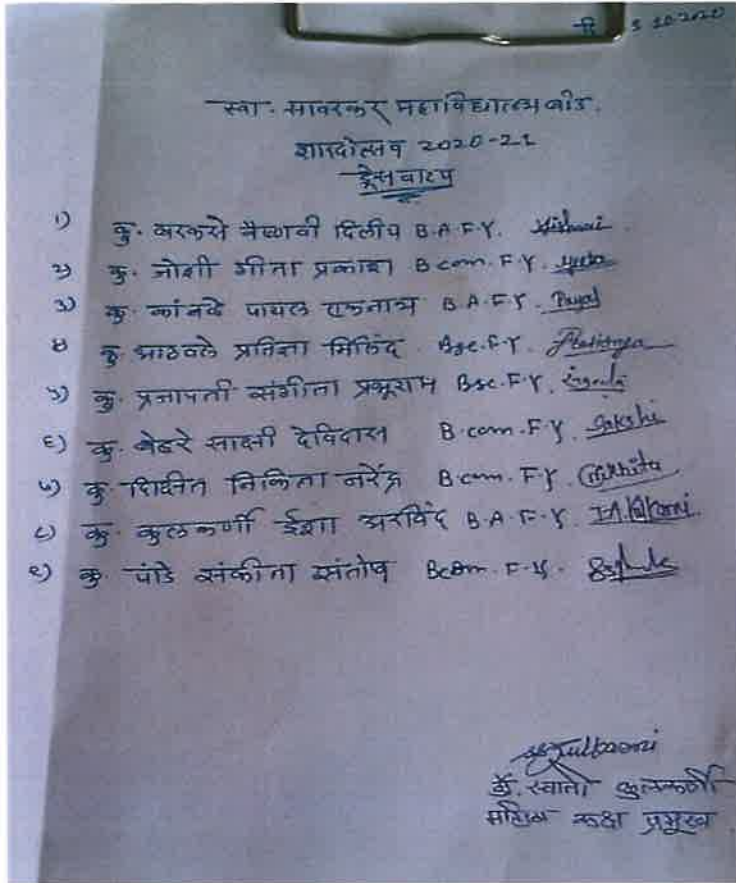 दि 5.10.2020
स्वा. सावरकर महाविद्यालय बीड.
शारदोत्सव 2020-21
ड्रेस वाटप
१) कु. अरकसे वैष्णवी दिलीप B.A.F.Y.
२) कु. जोशी गीता प्रकाश B com. F.Y. Geeta
३) कु. कांनदे पायल एकनाथ B.A.F.Y. Payal
४) कु. आठवले प्रतिज्ञा मिलिंद Bsc.F.Y. Pratidnya
५) कु. प्रजापती संगीता प्रभूराम Bsc.F.Y.
६) कु. बेडरे साक्षी देविदास B.com.F.Y. Sakshi
७) कु. दिक्षीत निकिता नरेंद्र B.com.F.Y. Nikhita
८) कु. कुलकर्णी ईशा अरविंद B.A.F.Y. I.A.Kulkarni.
९) कु. पांडे संकीता संतोष Bcom.F.Y.
Kulkarni
डॉ. स्वाती कुलकर्णी
महिला कक्ष प्रमुख